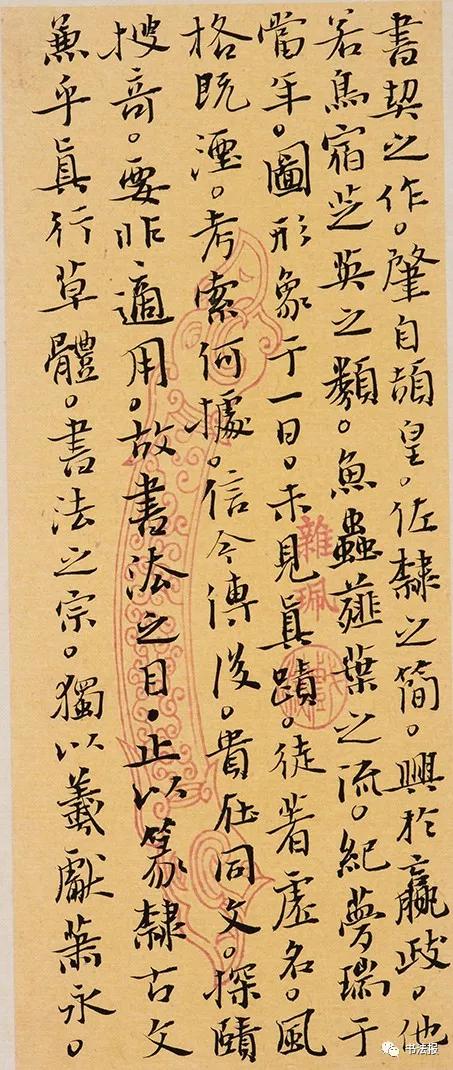 書契之作。肇自頡皇。佐隸之簡。興於嬴政。他
若鳥宿芝英之類。魚蟲薤葉之流。紀夢瑞于
當年。圖形象于一日。未見真蹟。徒著虛名。風
格既湮。考索何據。信今傳後。貴在同文。探賾
搜奇。要非適用。故書法之目。止以篆隸古文
兼乎真行草體。書法之宗。獨以羲獻蕭永。
雜珮
书法报